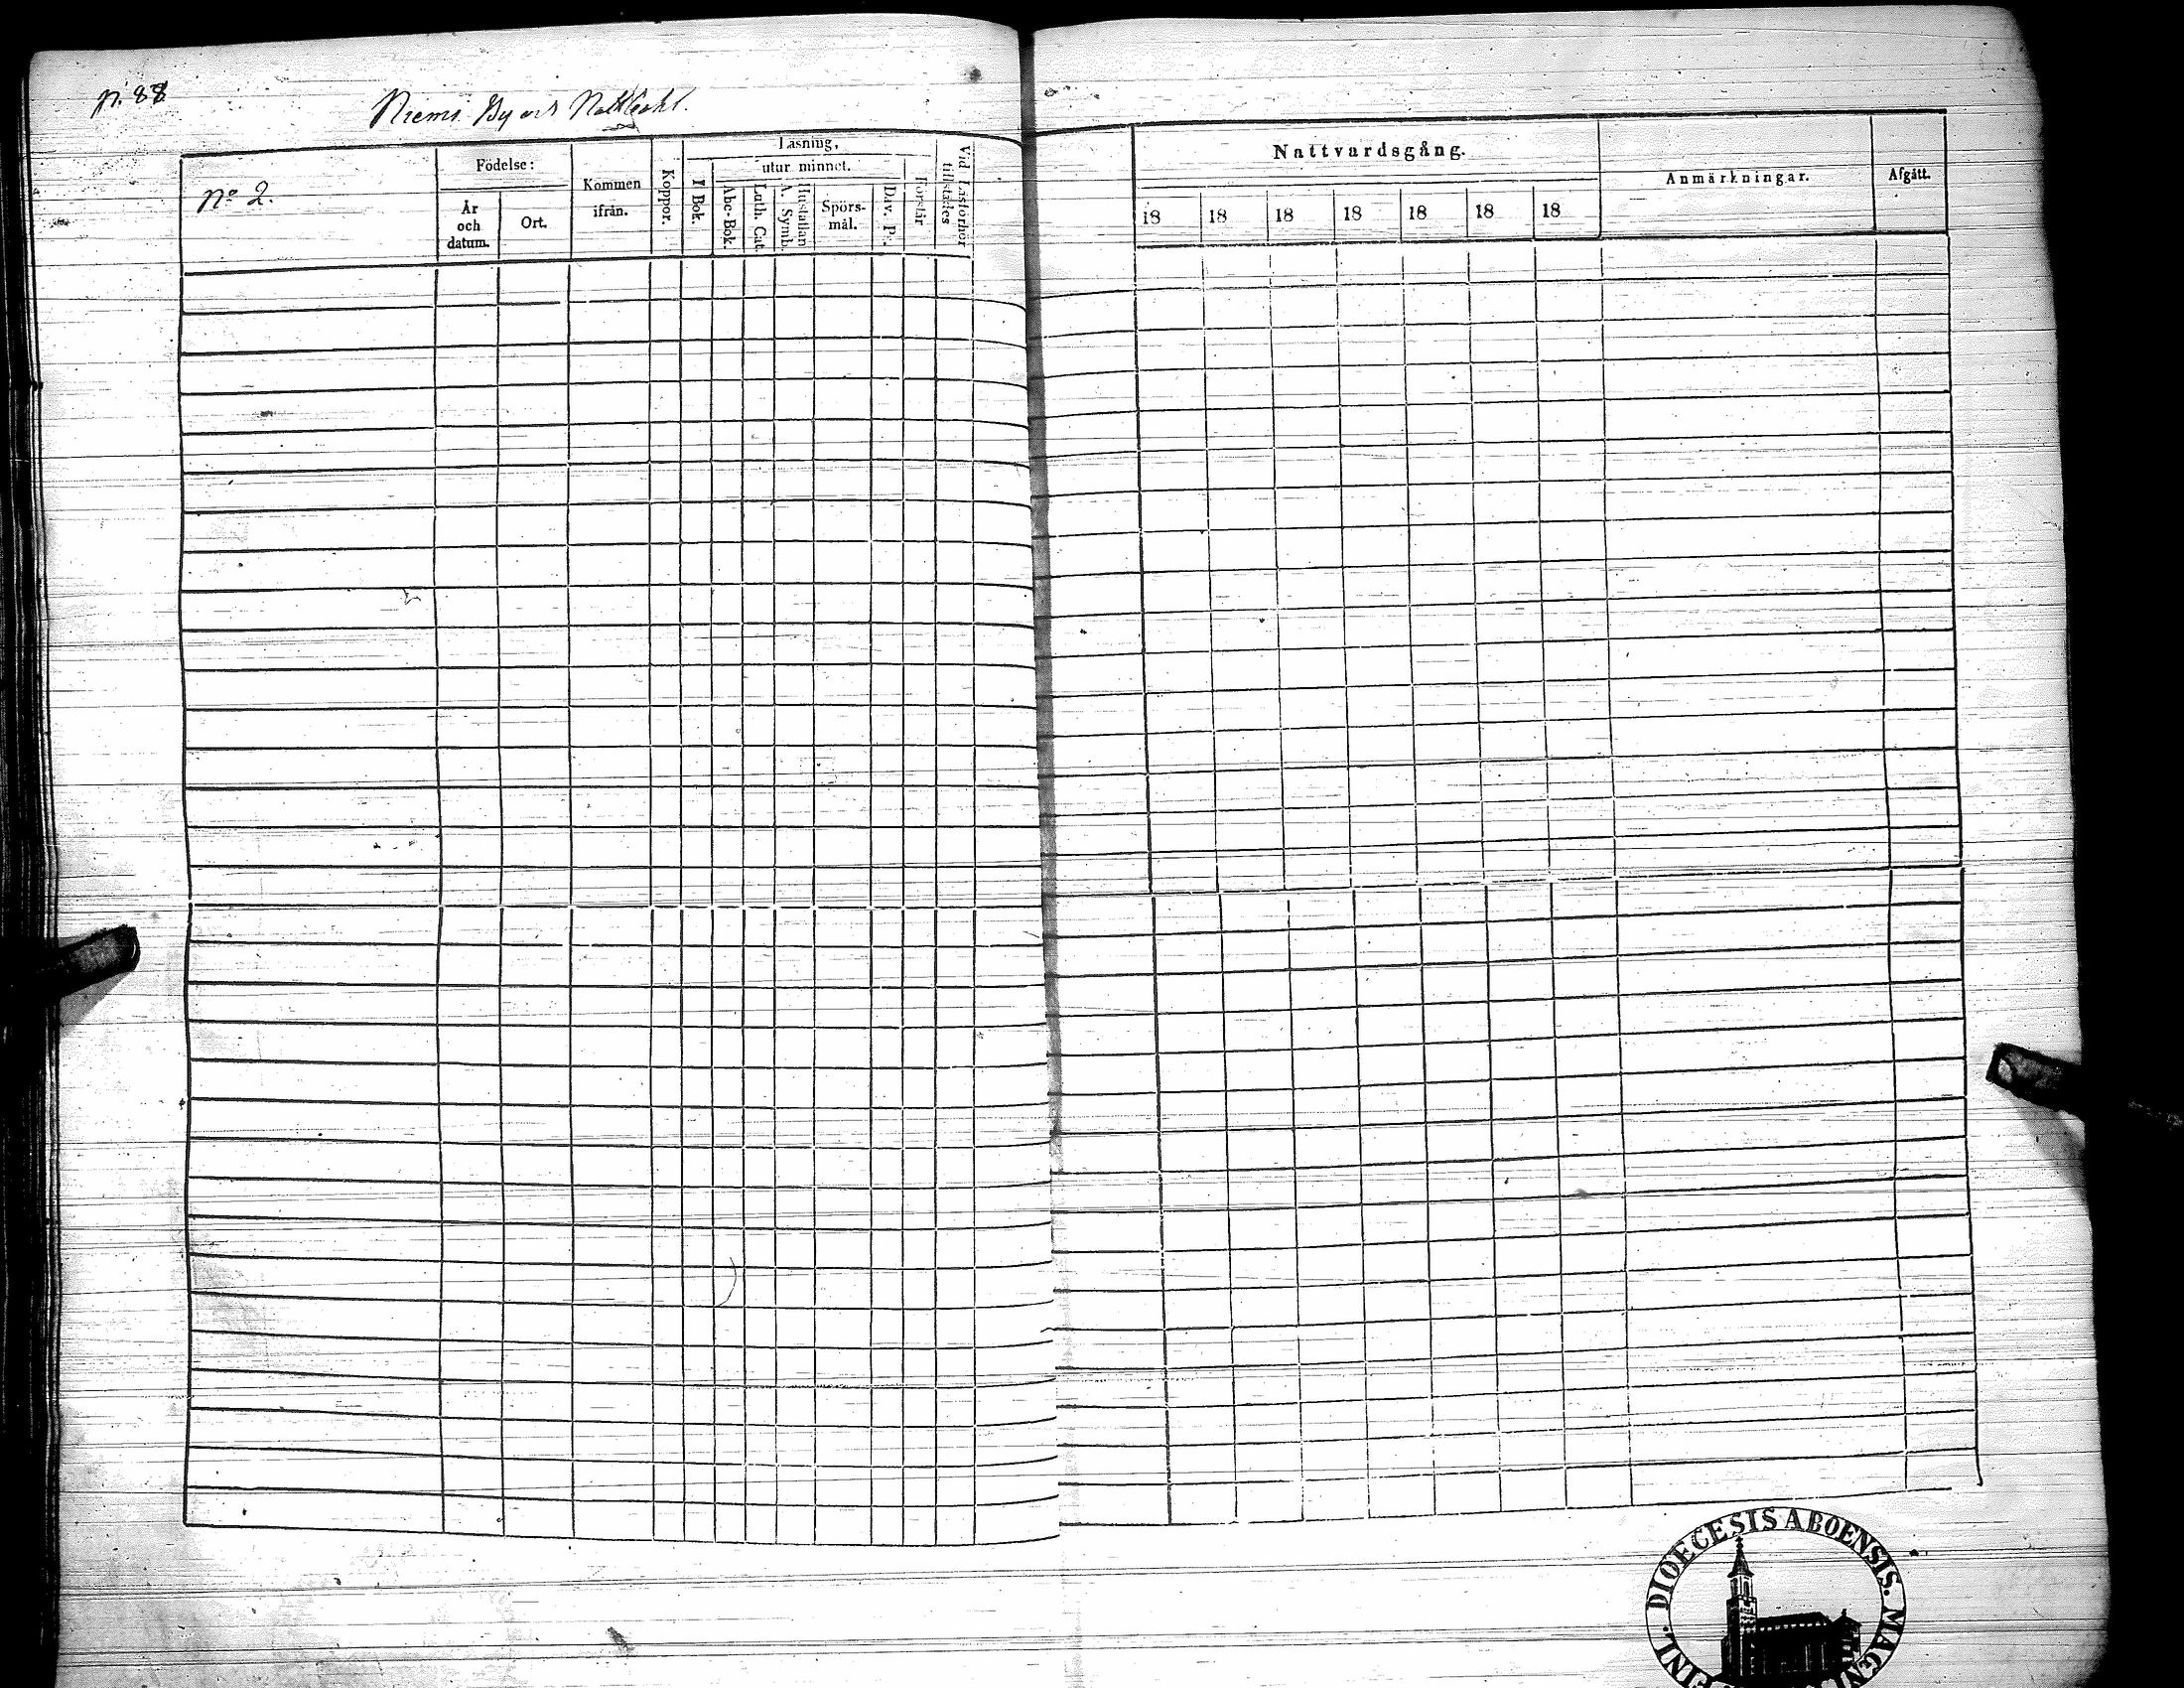 p. 88
Niemi By och
No 2.
Födelse:
År
och
datum.
Ort.
Kommen
ifrån.
Koppor.
Läsning,
I Bok.
utur minnet.
Abc-Bok.
Luth. Cat.
Hustaflan
A. Symb.
Spörs-
mål.
Dav. Ps.
Förstår
Vid Läsförhör
tillstädes
Nattvardsgång.
18 18 18 18 18 18 18
Anmärkningar.
Afgått.
DIOECESIS ABOENSIS. MAGNI
FINL.